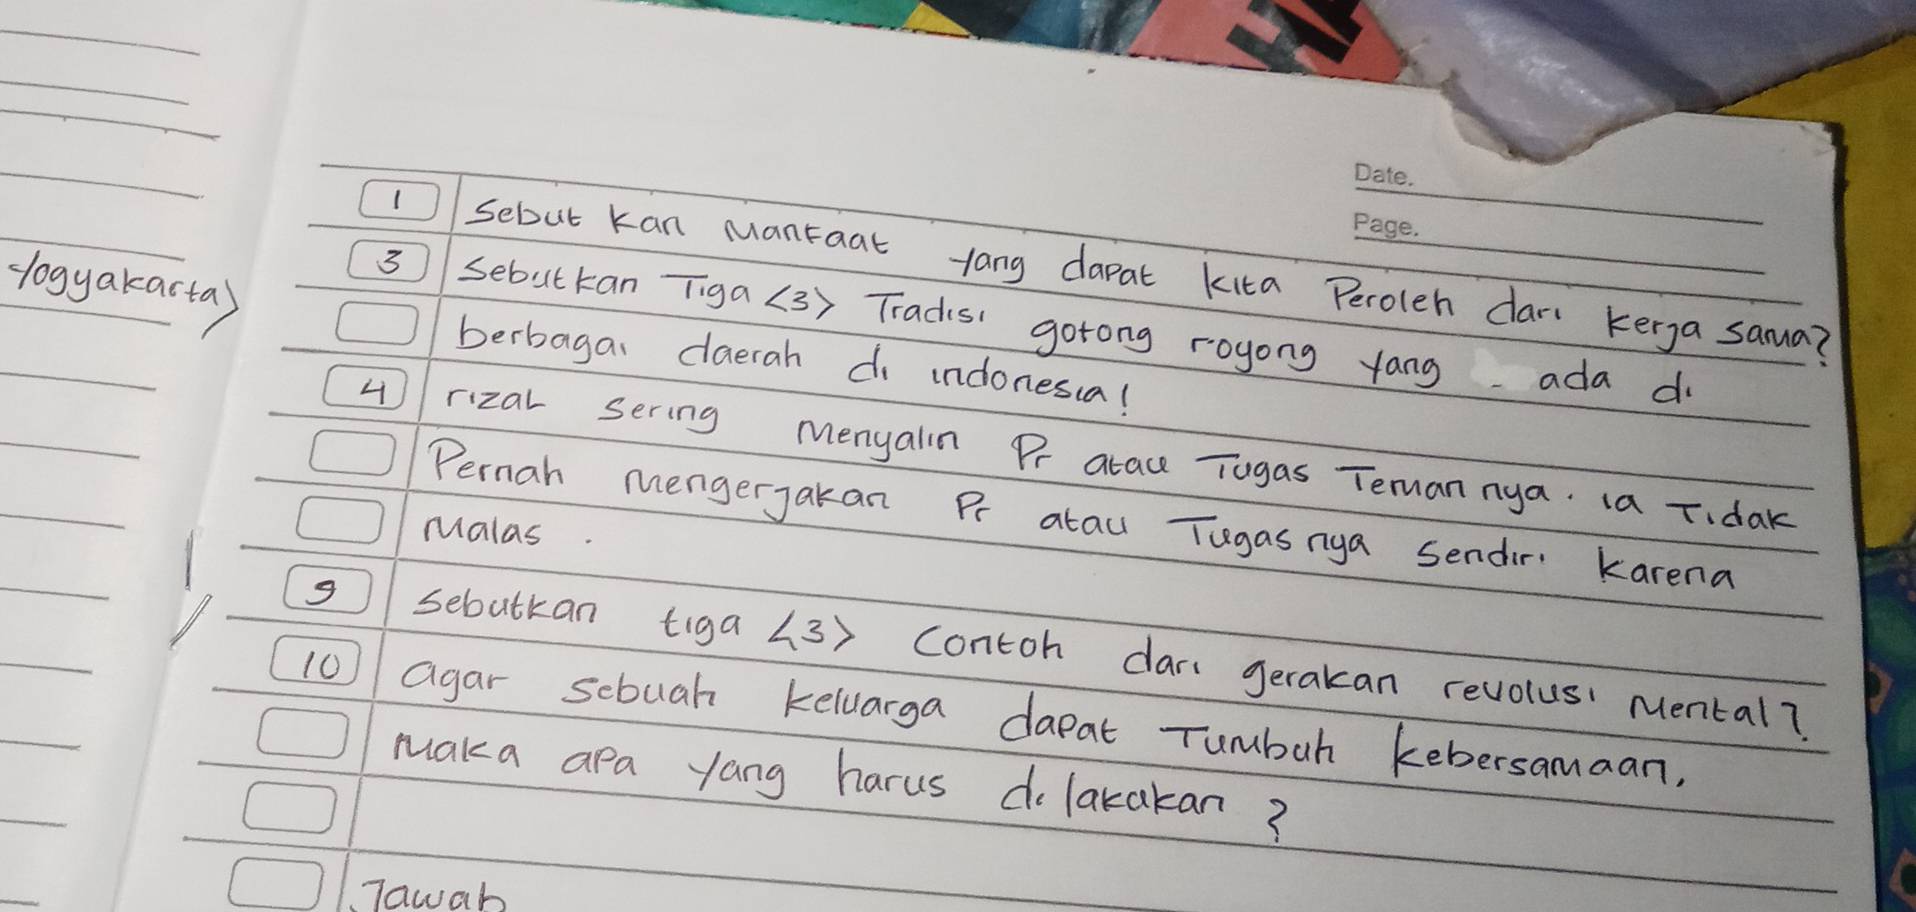 HA
Date.
Page.
Yogyakarta)
1 Sebut kan Manfaat yang dapat kita Peroleh dari kerja sama?
3 Sebutkan Tiga <3> Tradisi gotong royong yang ada di
berbagai daerah di indonesia!
4 rizal sering Menyalin Pr atau Tugas Teman nya. ia Tidak
Pernah Mengerjakan Pr atau Tugas nya Sendiri karena
Malas.
9 Sebutkan tiga <3> Contoh dari gerakan revolusi Mental?
10 agar sebuah keluarga dapat Tumbuh kebersamaan,
Maka apa yang harus di lakukan?
Jawab